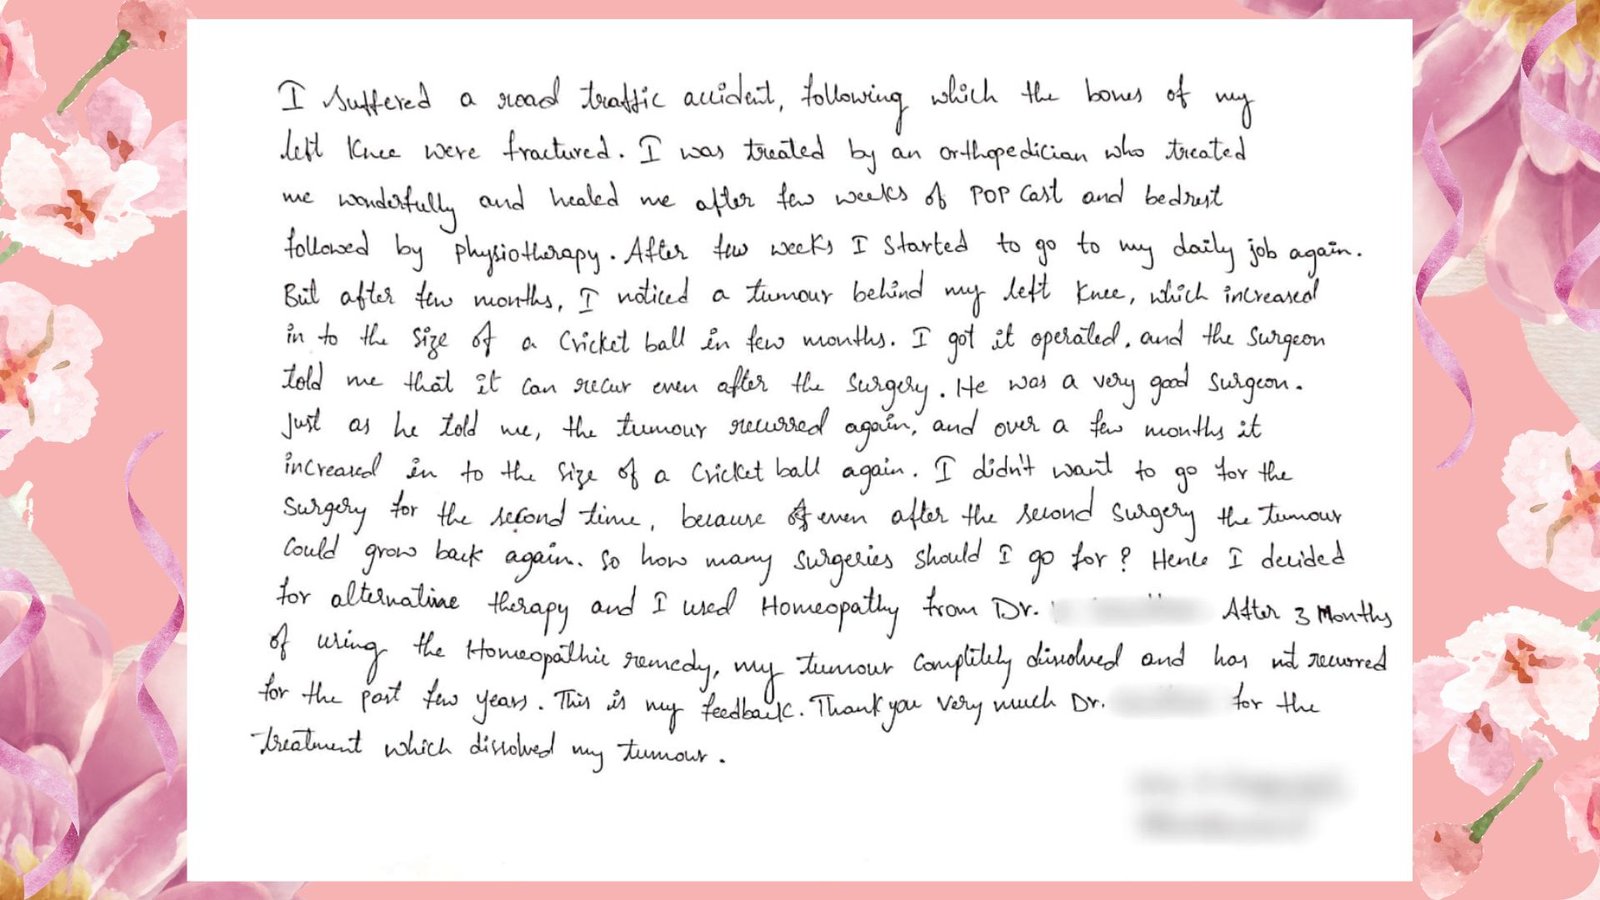 I suffered a road traffic accident, following which the bones of my
left Knee were fractured. I was treated by an orthopedician who treated
me wonderfully and healed me after few weeks of POP Cast and bedrest
followed by physiotherapy. After few weeks I started to go to my daily job again.
But after few months, I noticed a tumour behind my left Knee, which increased
in to the size of a Cricket ball in few months. I got it operated, and the Surgeon
told me that it can recur even after the surgery. He was a very good surgeon.
Just as he told me, the tumour recurred again, and over a few months it
increased in to the size of a Cricket ball again. I didn't want to go for the
surgery for the second time, because even after the second surgery the tumour
could grow back again. So how many surgeries should I go for? Hence I decided
for alternative therapy and I used Homeopathy from Dr. After 3 Months
of using the Homeopathic remedy, my tumour completely dissolved and has not recurred
for the past few years. This is my feedback. Thank you very much Dr. for the
treatment which dissolved my tumour.